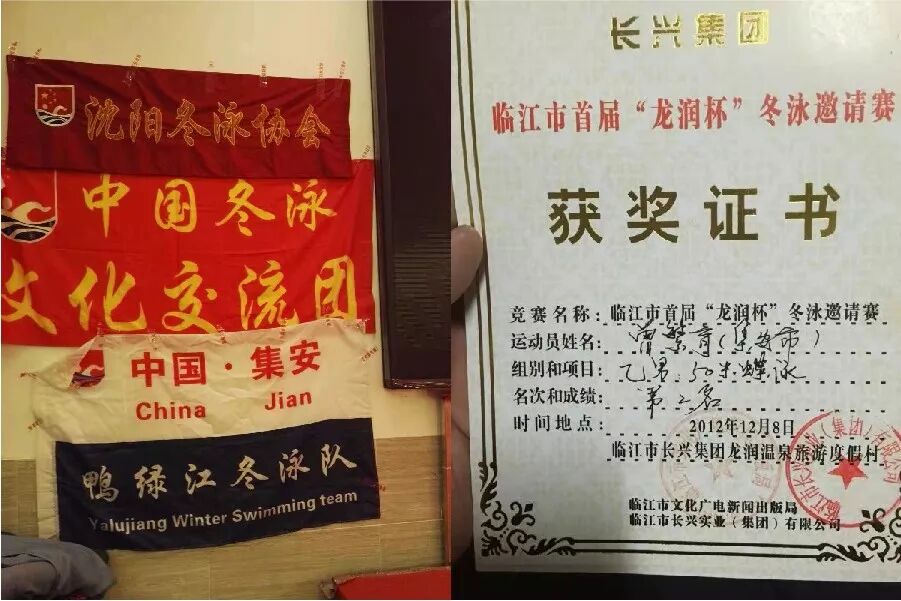 沈阳冬泳协会
中国冬泳
文化交流团
中国·集安
China Jian
鸭绿江冬泳队
Yalujiang Winter Swimming team
长兴集团
临江市首届“龙润杯”冬泳邀请赛
获奖证书
竞赛名称：临江市首届“龙润杯”冬泳邀请赛
运动员姓名：曾繁育（集安市）
组别和项目：乙男.50米蝶泳
名次和成绩：第二名
时间地点：2012年12月8日
临江市长兴集团龙润温泉旅游度假村
临江市文化广电新闻出版局
临江市长兴实业（集团）有限公司